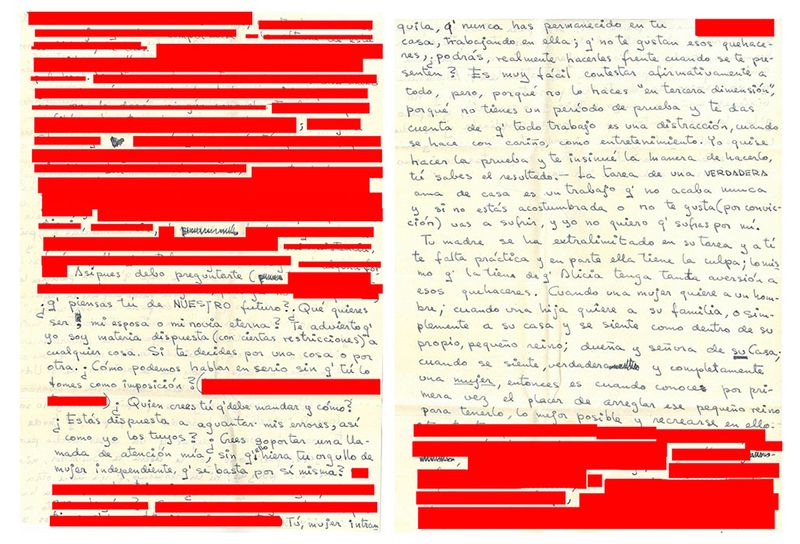 Asípues debo preguntarte (
¿q' piensas tú de NUESTRO futuro?. ¿Qué quieres
ser, mi esposa o mi novia eterna? Te advierto q'
yo soy materia dispuesta (con ciertas restricciones) a
cualquier cosa. Si te decides por una cosa o por
otra.. ¿Cómo podemos hablar en serio sin q' tú lo
tomes como imposición? (
). ¿Quien crees tú q' debe mandar y cómo?
¿Estás dispuesta a aguantar mis errores, así
como yo los tuyos? ¿Crees soportar una lla-
mada de atención mía, sin q' hiera tu orgullo de
mujer independiente, q' se basta por sí misma?
Tú, mujer intran-
quila, q' nunca has permanecido en tu
casa, trabajando en ella; q' no te gustan esos quehace-
res, ¿podrás, realmente hacerles frente cuando se te pre-
senten? Es muy fácil contestar afirmativamente a
todo, pero, porqué no lo haces "en tercera dimensión",
porqué no tienes un período de prueba y te das
cuenta de q' todo trabajo es una distracción, cuando
se hace con cariño, como entretenimiento. Yo quise
hacer la prueba y te insinué la manera de hacerlo,
tú sabes el resultado.- La tarea de una VERDADERA
ama de casa es un trabajo q' no acaba nunca
y si no estás acostumbrada o no te gusta (por convic-
ción) vas a sufrir y yo no quiero q' sufras por mí.
Tu madre se ha extralimitado en su tarea y a tí
te falta práctica y en parte ella tiene la culpa; lo mis
mo q' la tiene de q' Alicia tenga tanta aversión a
esos quehaceres. Cuando una mujer quiere a un hom-
bre; cuando una hija quiere a su familia, o sim-
plemente a su casa y se siente como dentro de su
propio, pequeño reino; dueña y señora de su Casa;
cuando se siente, verdadera y completamente
una mujer, entonces es cuando conoces por pri-
mera vez el placer de arreglar ese pequeño reino
para tenerlo, lo mejor posible y recrearse en ello.